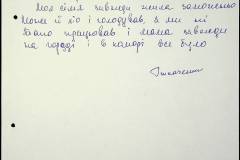 Моя сімя завжди жила заможньо
Може й хто і голодував, а ми ні
Батько працював і мама завжди
на городі і в коморі все було
Ткаченко